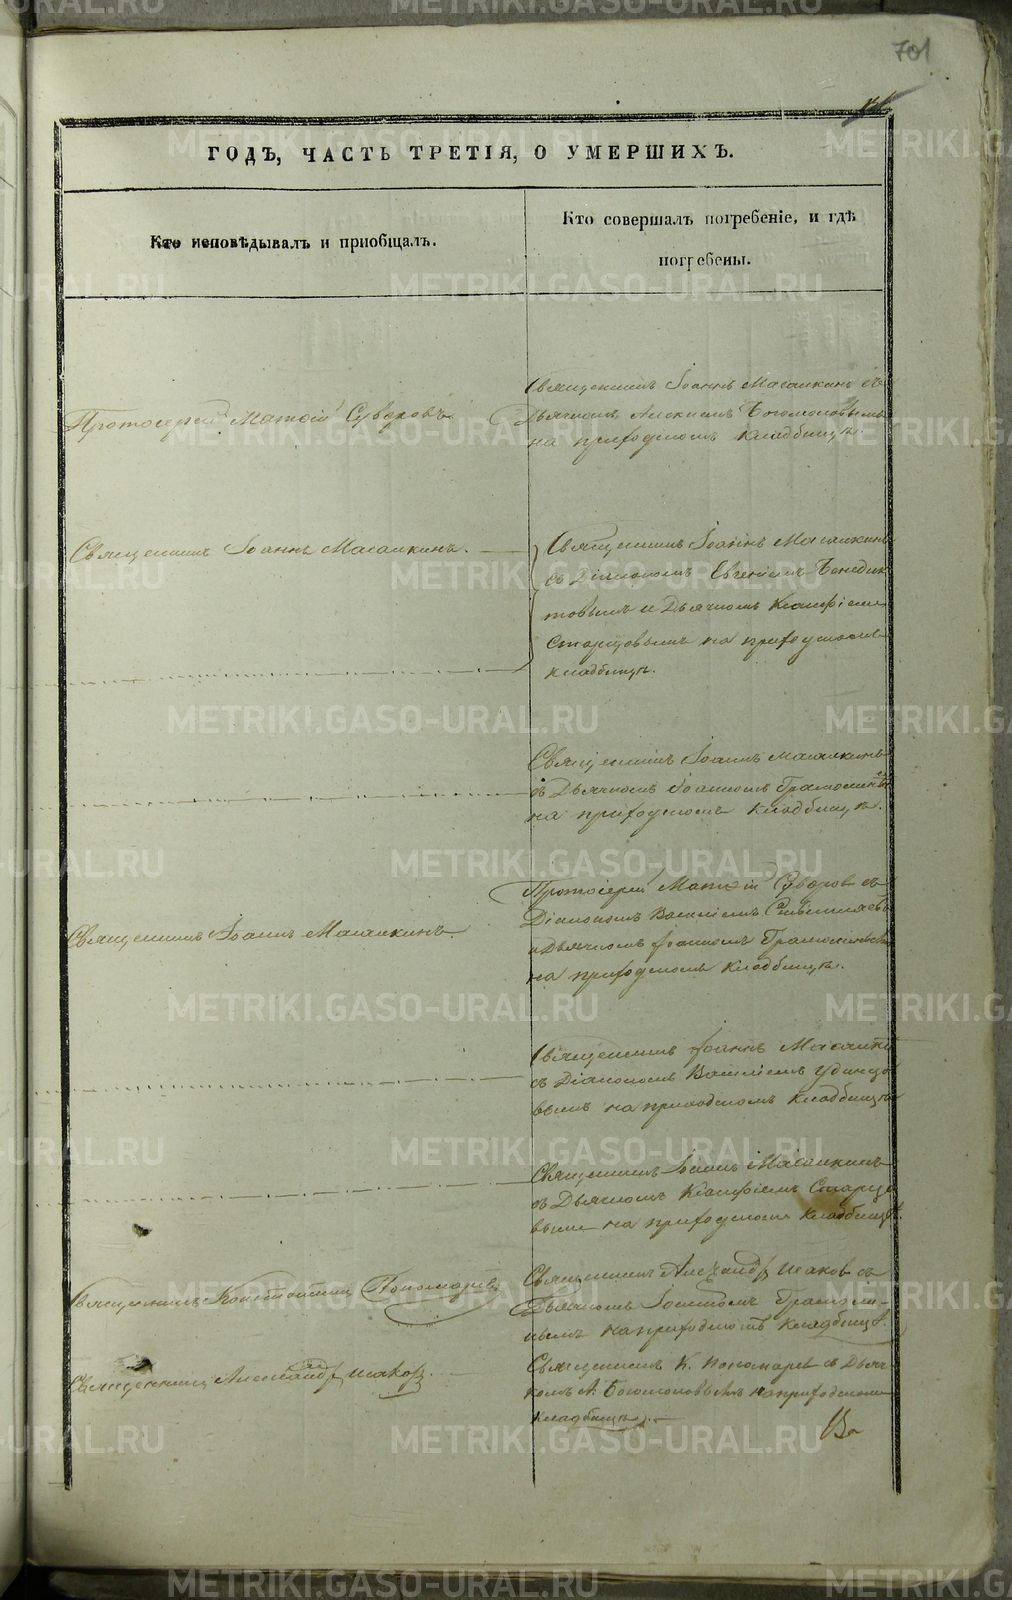 701
ГОДЪ, ЧАСТЬ ТРЕТІЯ, О УМЕРШИХЪ.
Кто исповѣдывалъ и пріобщалъ.
Кто совершалъ погребеніе, и гдѣ
погребены.
Протоіерей Матѳій Суворовъ
Священникъ Іоаннъ Масалкинъ съ
Дьячкомъ Алексіемъ Богомоловымъ
на приходскомъ кладбищѣ.
Священникъ Іоаннъ Масалкинъ.
Священникъ Іоаннъ Масалкинъ
съ Діакономъ Евгеніемъ Бенедик
товымъ и Дьячкомъ
Старцовымъ на приходскомъ
кладбищѣ.
Священникъ Іоаннъ Масалкинъ
съ Дьячкомъ Іоанномъ
на приходскомъ кладбищѣ.
Священникъ Іоаннъ Масалкинъ.
Протоіерей Матѳій Суворовъ съ
Діакономъ Василіемъ
и Дьячкомъ Іоанномъ
на приходскомъ кладбищѣ.
Священникъ Іоаннъ Масалкинъ
съ Діакономъ Василіемъ Удинцо
вымъ на приходскомъ кладбищѣ
Священникъ Іоаннъ Масалкинъ
съ Дьячкомъ Старцо
вымъ на приходскомъ кладбищѣ.
Священникъ Константинъ Пономаревъ
Священникъ Александръ Исаковъ съ
Дьячкомъ Іоанномъ
на приходскомъ кладбищѣ.
Священникъ Александръ Исаковъ.
Священникъ К. Пономаревъ съ Дьяч
комъ А. Богомоловымъ на приходскомъ
кладбищѣ.
METRIKI.GASO-URAL.RU